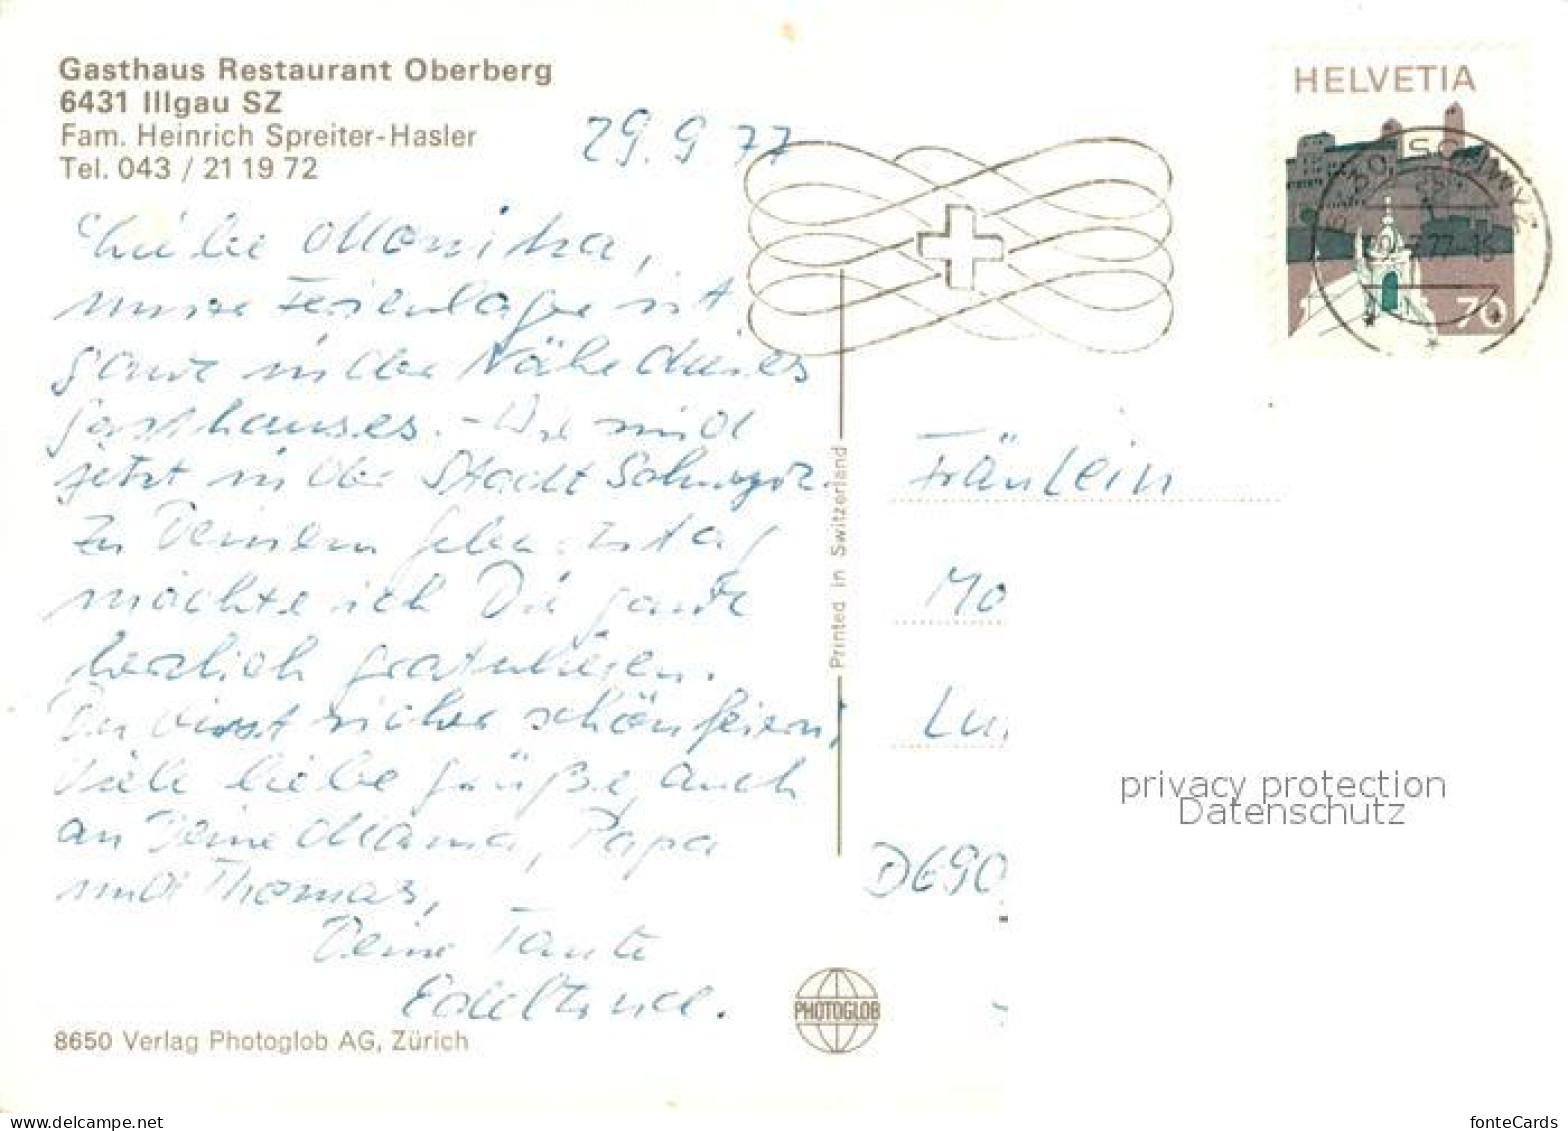 Gasthaus Restaurant Oberberg
6431 Illgau SZ
Fam. Heinrich Spreiter-Hasler
Tel. 043 / 21 19 72
29.9.77
HELVETIA
70
SCHWYZ
Liebe Monika,
unser Ferienlager ist
ganz in der Nähe dieses
Gasthauses. - Wir sind
jetzt in der Stadt Schwyz.
Zu Deinem Geburtstag
möchte ich Dir ganz
herzlich gratulieren.
Du wirst sicher schön feiern,
Viele liebe Grüße, auch
an Deine Mama, Papa
und Thomas,
Deine Tante
Edeltrud.
Printed in Switzerland
Fräulein
Mo
Lu
D690
privacy protection
Datenschutz
PHOTOGLOB
8650 Verlag Photoglob AG, Zürich
www.delcampe.net
fonteCards